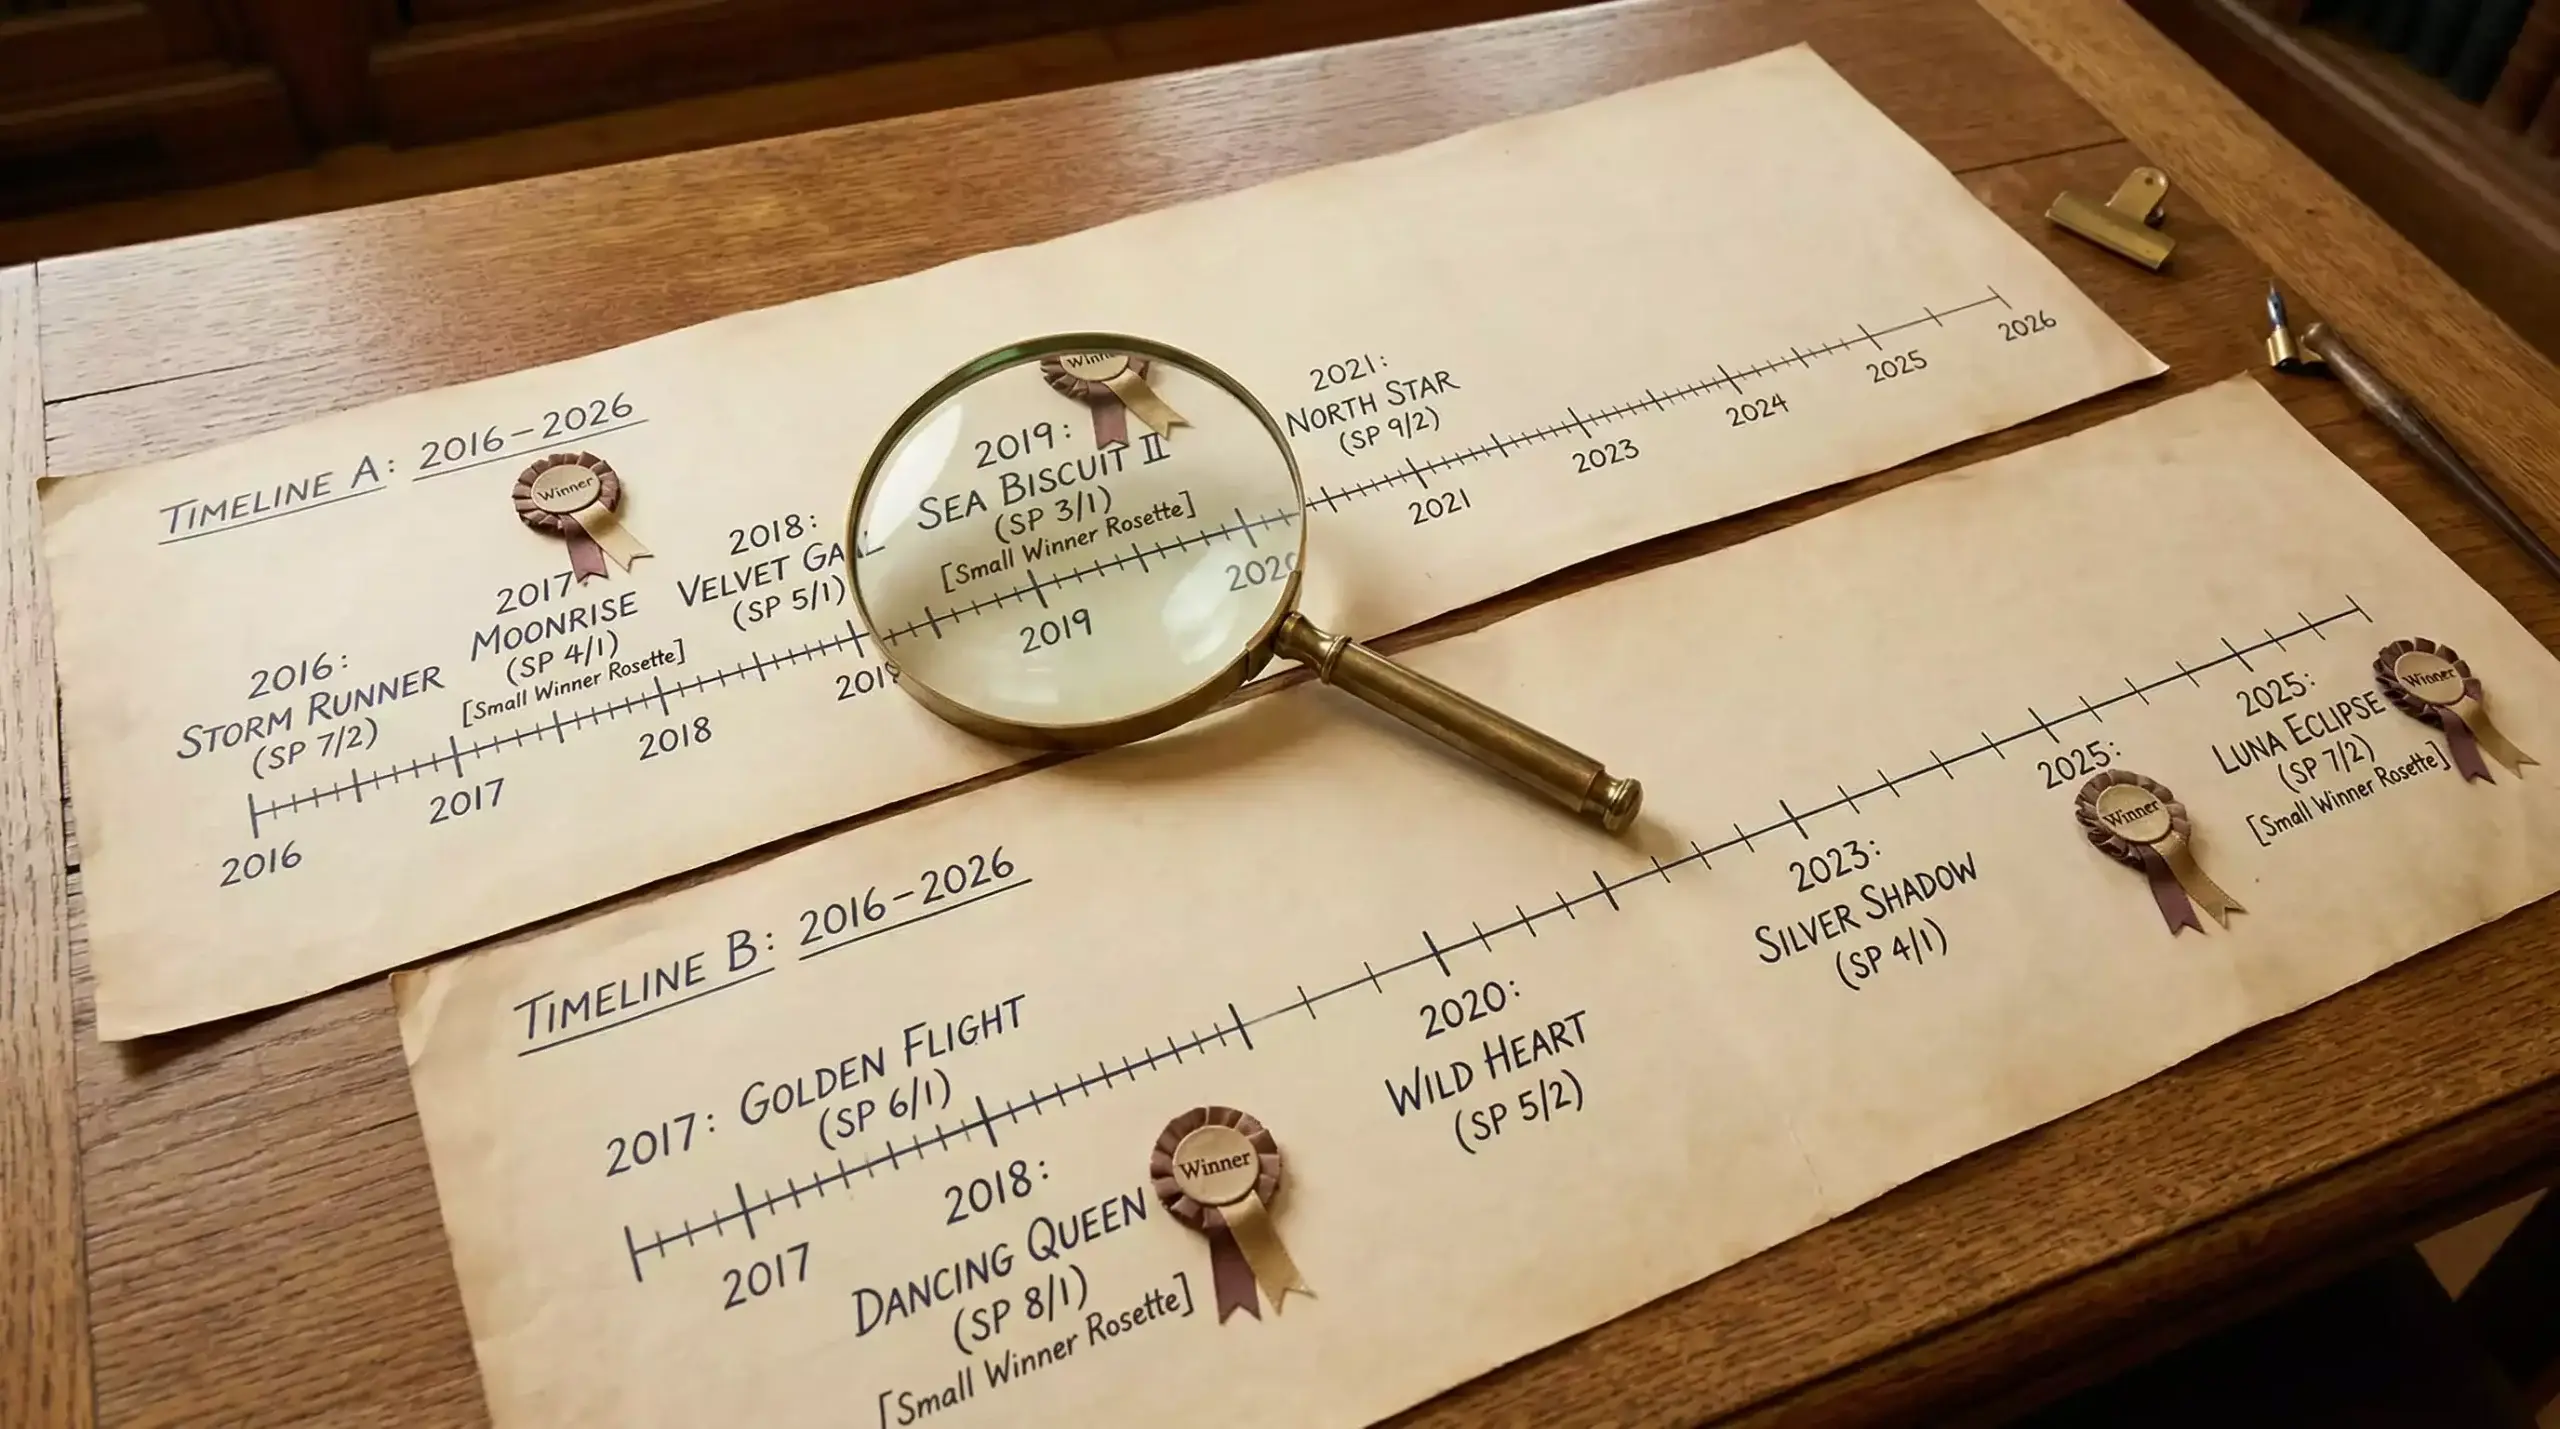 TIMELINE A: 2016-2026
Winner
2016:
STORM RUNNER
(SP 7/2)
2017
MOONRISE
(SP 4/1)
[Small Winner Rosette]
2018:
VELVET GAL
(SP 5/1)
Winne
2019:
SEA BISCUIT II
(SP 3/1)
[Small Winner Rosette]
2021:
NORTH STAR
(SP 9/2)
2016
2017
2018
2019
2019
2020
2021
2023
2024
2025
2026
TIMELINE B: 2016-2026
2017: GOLDEN FLIGHT
(SP 6/1)
2017
2018:
DANCING QUEEN
(SP 8/1)
[Small Winner Rosette]
Winner
2020:
WILD HEART
(SP 5/2)
2023:
SILVER SHADOW
(SP 4/1)
2025:
Winner
2025:
LUNA ECLIPSE
(SP 7/2)
[Small Winner Rosette]
Winner